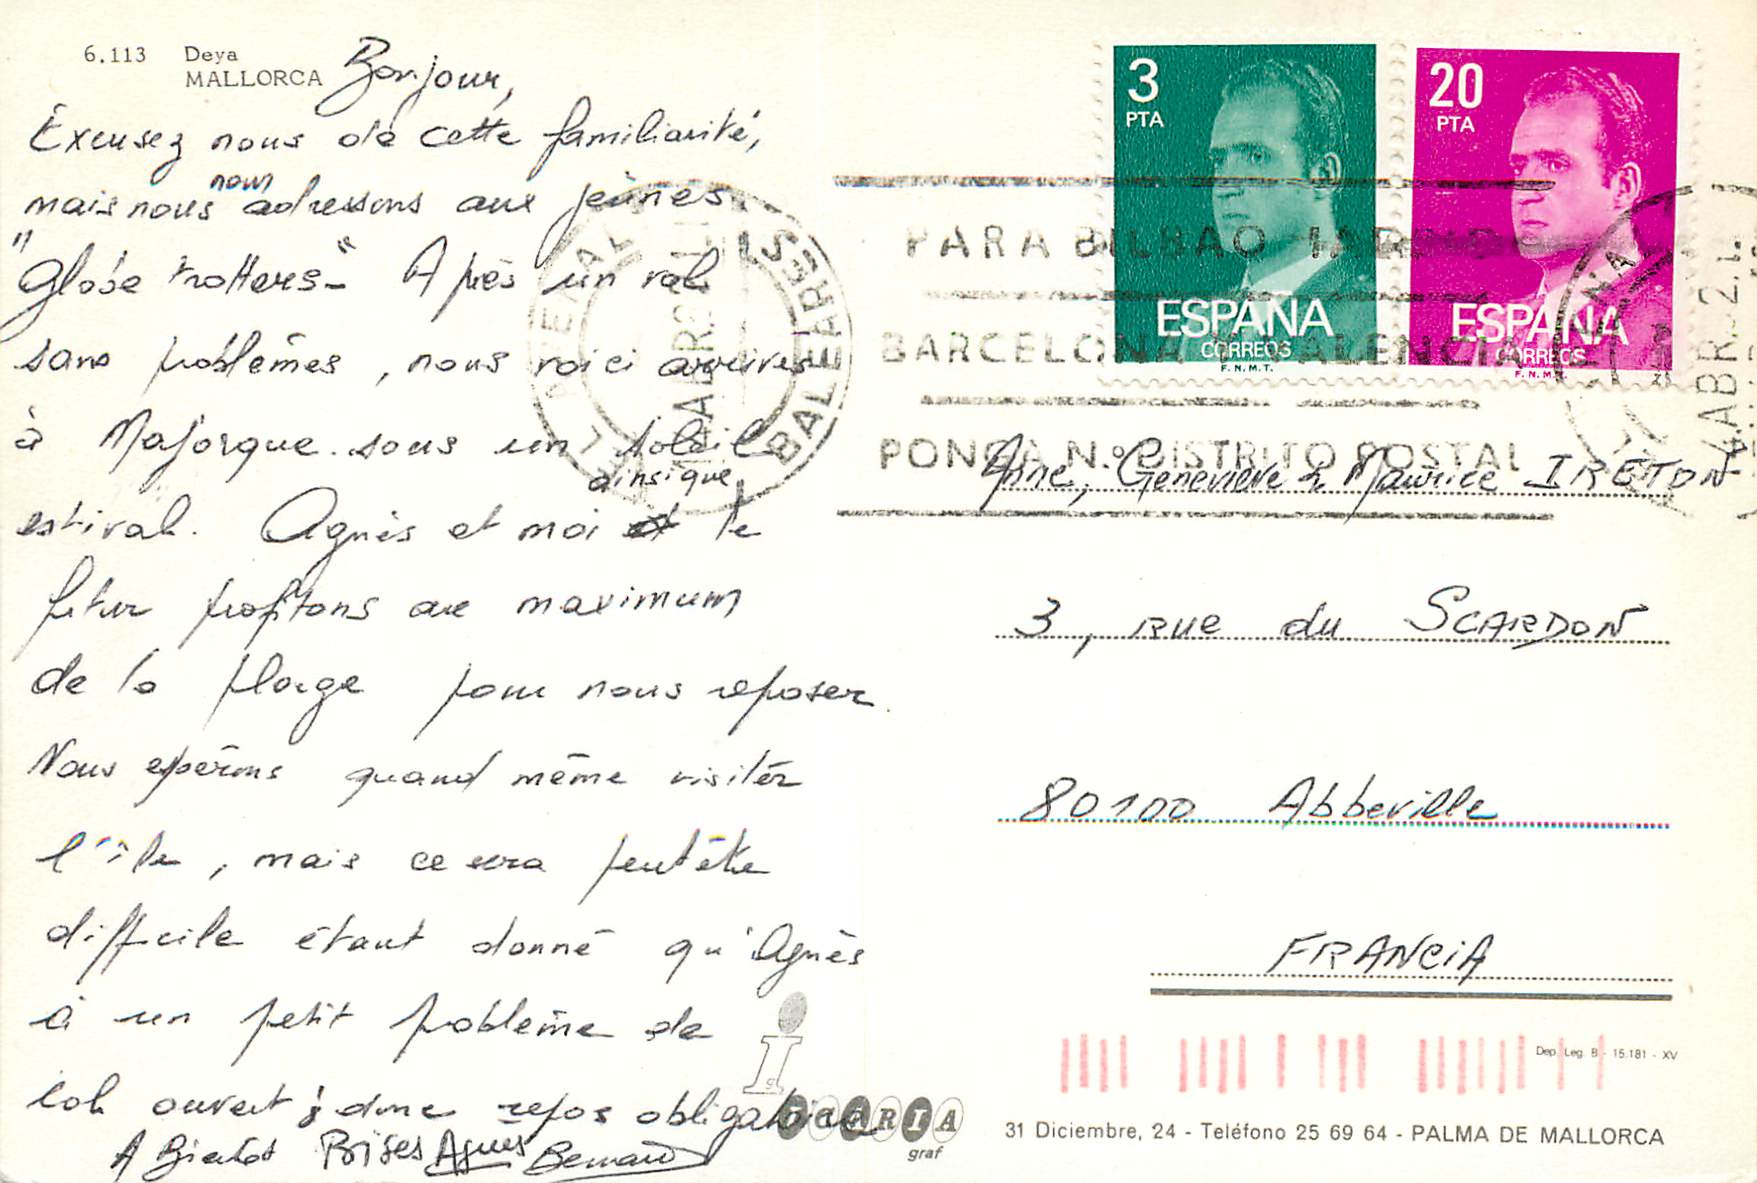 6.113 Deya
MALLORCA
Bonjour,
Excusez nous de cette familiarité,
mais nous nous adressons aux jeunes
"Globe trotters" Après un vol
sans problèmes, nous voici arrivés
à Majorque sous un soleil
estival. Agnès et moi ainsi que le
futur profitons au maximum
de la plage pour nous reposer.
Nous espérons quand même visiter
l'île, mais ce sera peut être
difficile étant donné qu'Agnès
à un petit problème de
col ouvert ; donc repos obligatoire
A Bientôt Bises Agnès Bernard
3
PTA
ESPAÑA
CORREOS
F.N.M.T.
20
PTA
ESPAÑA
CORREOS
F.N.M.T.
BALEARES
PARA BILBAO MADRID
BARCELONA VALENCIA
PONGA N.º DISTRITO POSTAL
Anne, Geneviève & Maurice IRETON
3, RUE du SCARDON
80100 Abbeville
FRANCIA
Dep. Leg. B - 15.181 - XV
ICARIA
graf
31 Diciembre, 24 - Teléfono 25 69 64 - PALMA DE MALLORCA